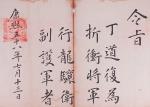 令旨
丁道後為
折衝將軍
行龍驤衛
副護軍者
康熙五十八年七月十三日